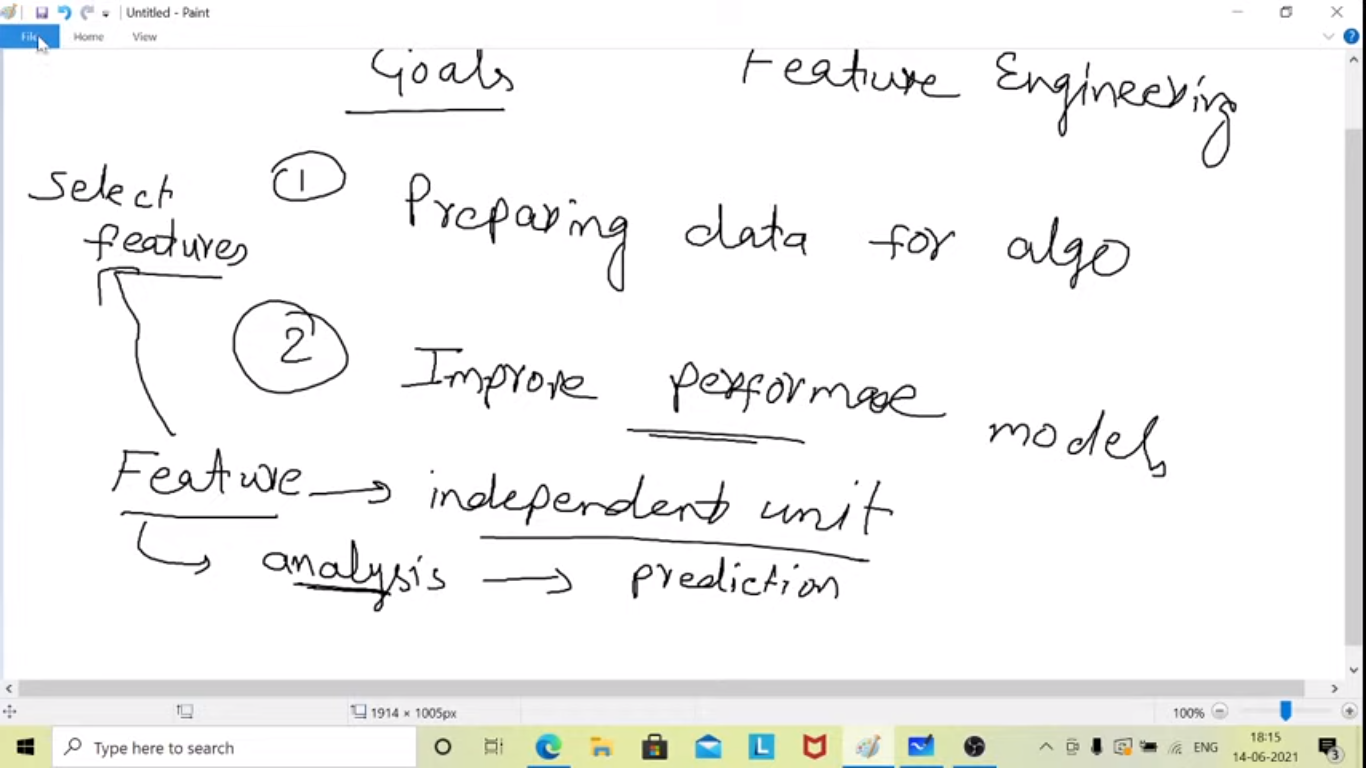 Untitled - Paint
File Home View
Goals Feature Engineering
Select
features
1 Preparing data for algo
2 Improve performace models
Feature → independent unit
analysis → prediction
1914 × 1005px 100%
Type here to search
ENG
18:15
14-06-2021
3